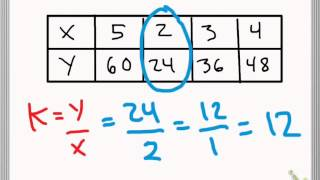 X 5 2 3 4
Y 60 24 36 48
K = y/x = 24/2 = 12/1 = 12